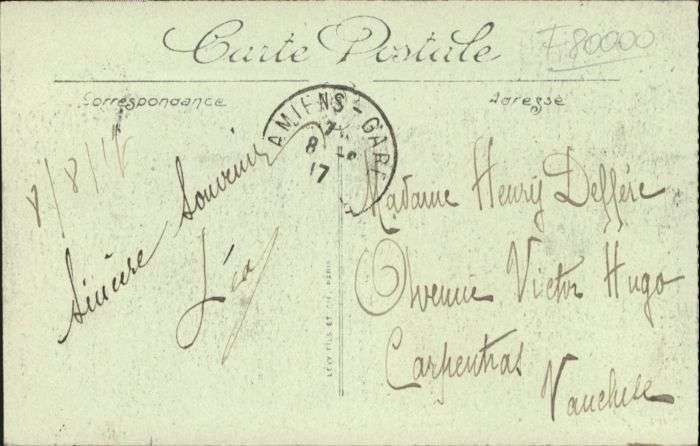 Carte Postale
F80000
Correspondance
Adresse
AMIENS-GARE
7
8
17
8/8/17
Sincère Souvenir
Léa
LÉVY FILS ET CIE, PARIS
Madame Henry Deffère
Avenue Victor Hugo
Carpentras
Vaucluse